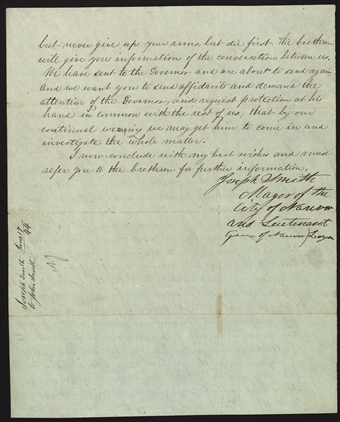 but never give up your arms, but die first. The brethren
will give you information of the conversation between us.
We have sent to the Governor and are about to send again
and we want you to send affidavits and demand the
attention of the Governor, and request protection at his
hand in common with the rest of us, that by our
continual wearying we may get him to come in and
investigate the whole matter.
I now conclude with my best wishes and must
refer you to the brethren for further information,
Joseph Smith
Mayor of the
City of Nauvoo
and Lieutenant
Gen. of Nauvoo Legion
Joseph Smith June 17
to John Smith